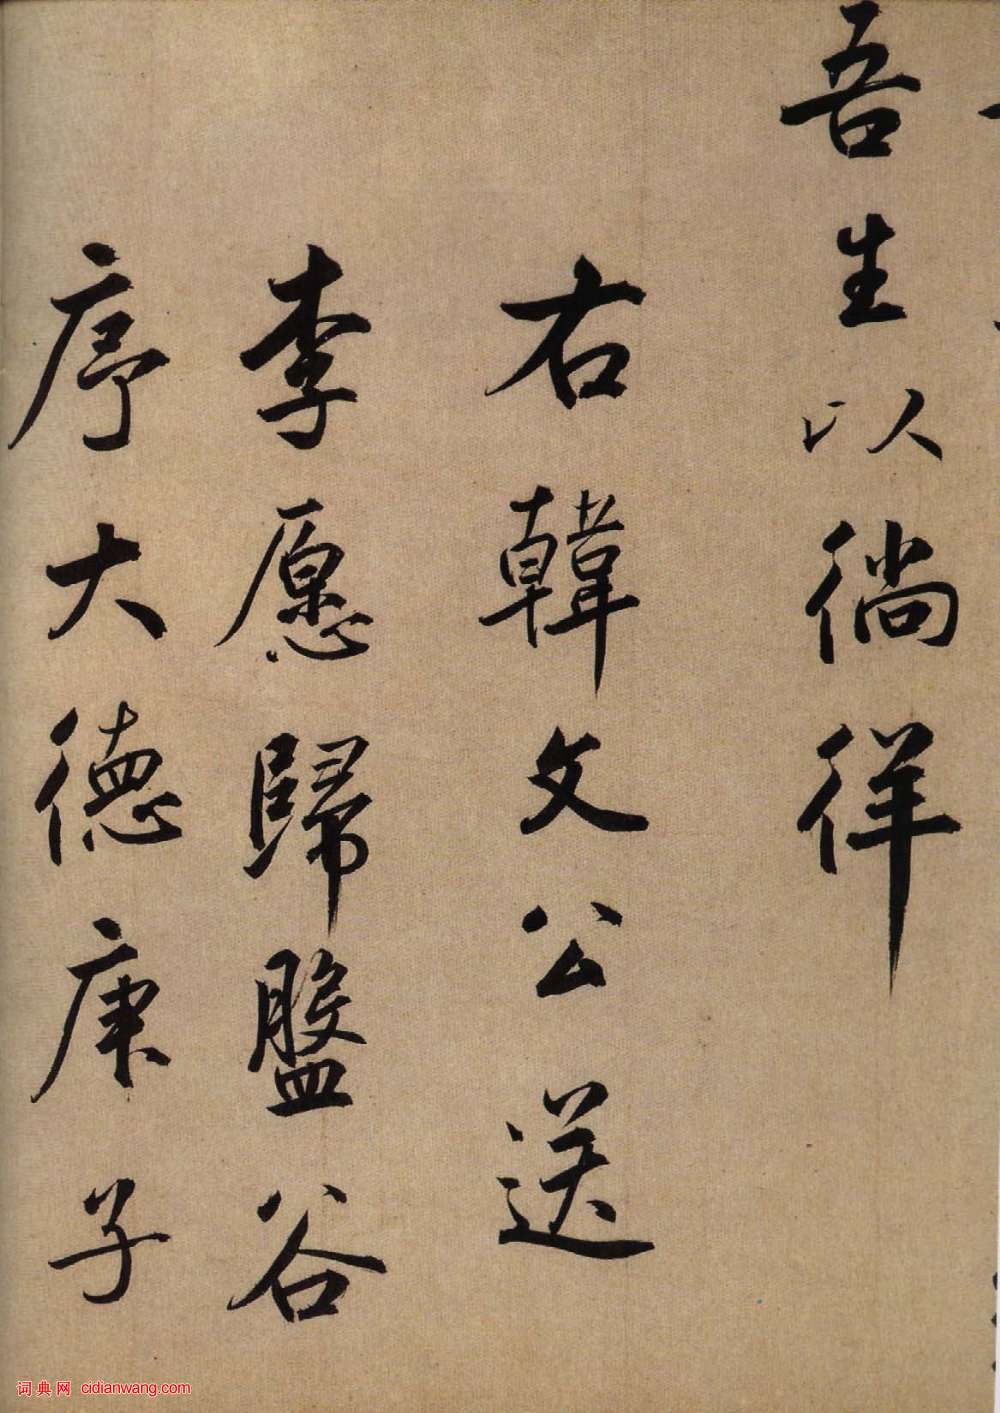 吾生以徜徉
右韓文公送
李愿歸盤谷
序大德庚子
词典网 cidianwang.com